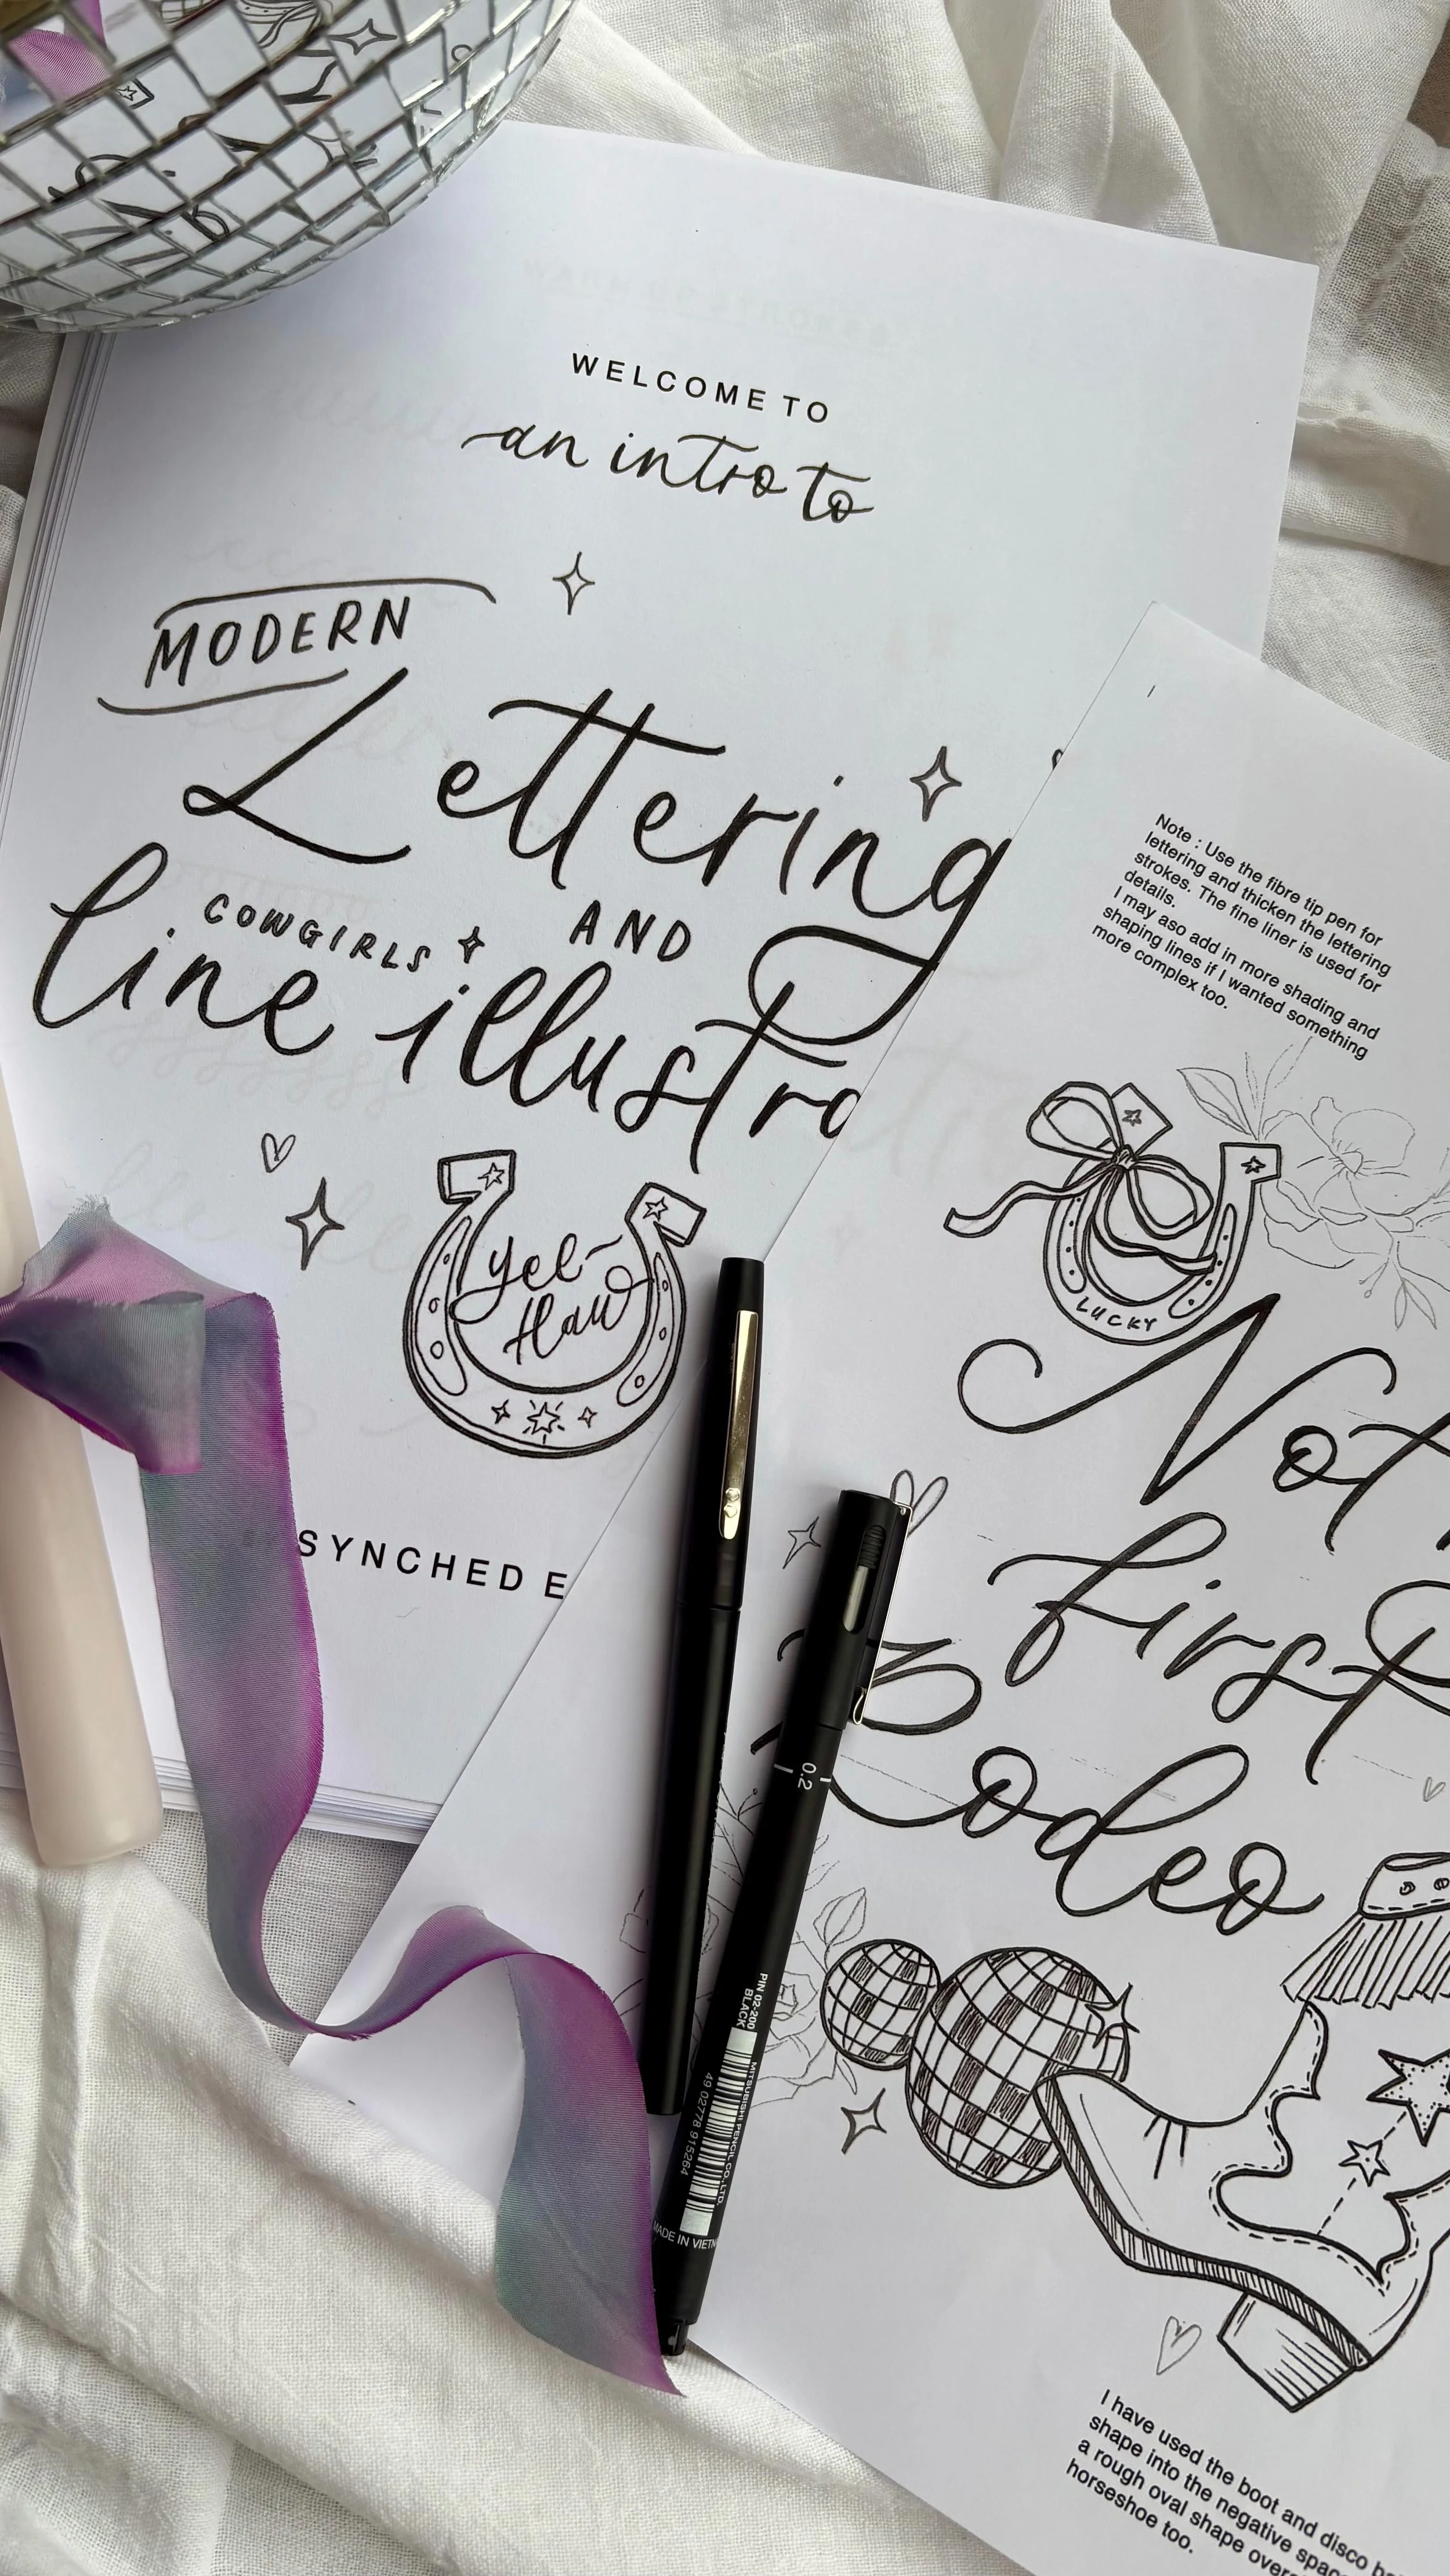 WELCOME TO
an intro to
MODERN
Lettering
COWGIRLS AND
line illustra
yee-
Haw
SYNCHED E
Note : Use the fibre tip pen for
lettering and thicken the lettering
strokes. The fine liner is used for
details.
I may aso add in more shading and
shaping lines if I wanted something
more complex too.
LUCKY
Not
first
Rodeo
0.2
PIN 02-200
BLACK
MITSUBISHI PENCIL CO., LTD.
49 02778 915264
MADE IN VIETN
I have used the boot and disco ba
shape into the negative spac
a rough oval shape over
horseshoe too.